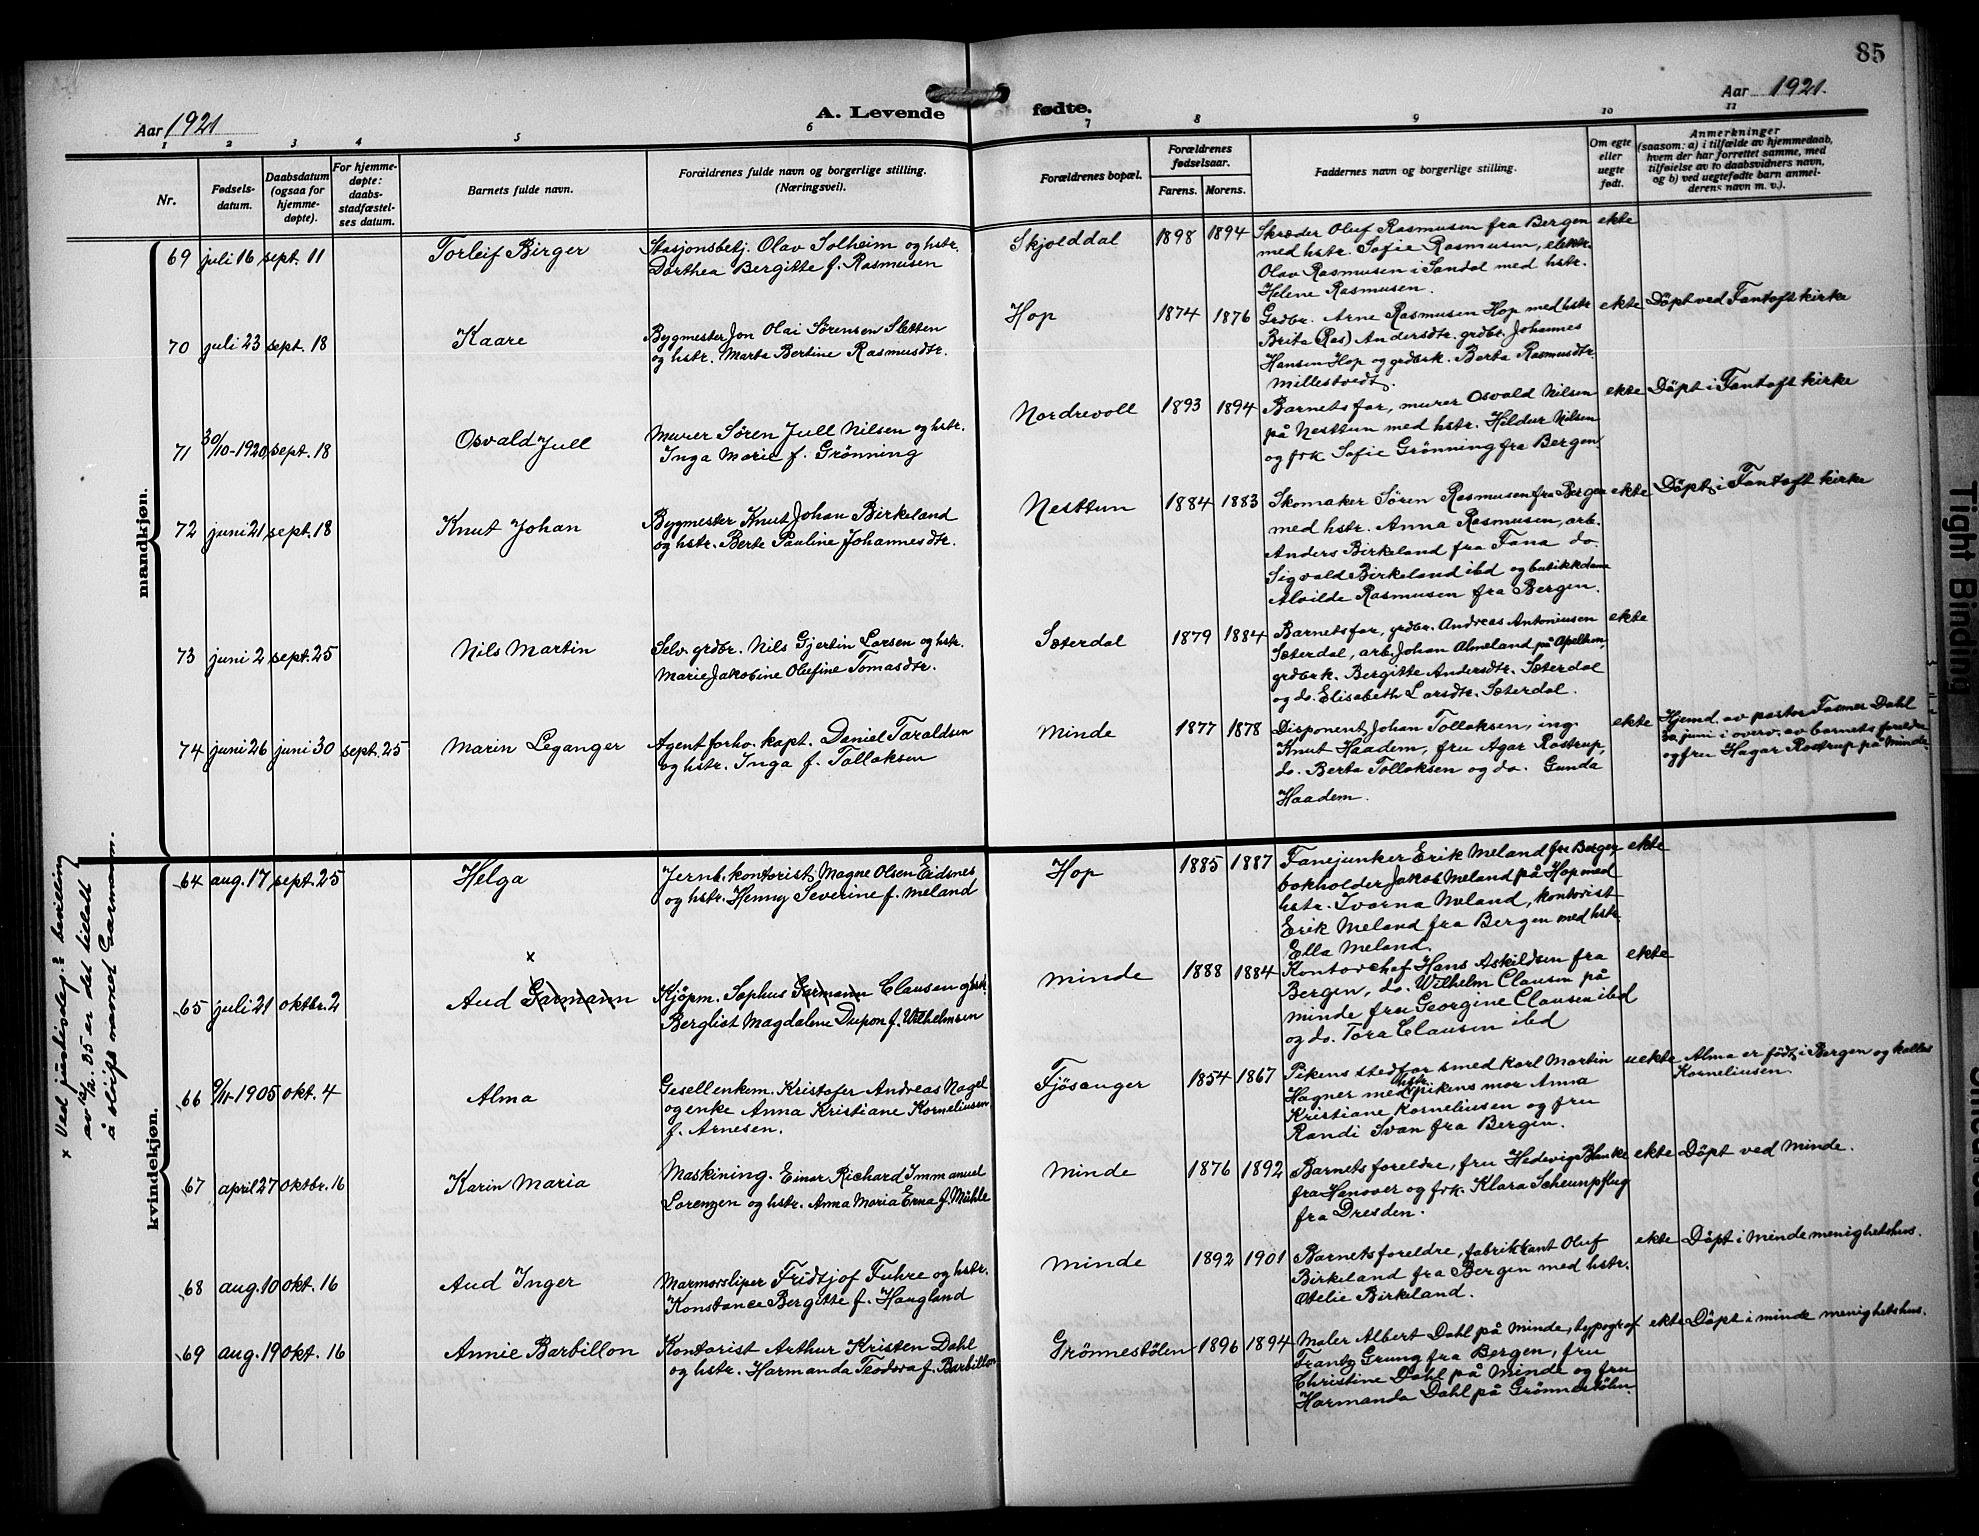 85
Aar 1921
A. Levende fødte.
Aar 1921.
1 2 3 4 5 6 7 8 9 10 11
Nr.
Fødsels-
datum.
Daabsdatum
(ogsaa for
hjemme-
døpte).
For hjemme-
døpte:
daabs-
stadfæstel-
ses datum.
Barnets fulde navn.
Forældrenes fulde navn og borgerlige stilling.
(Næringsvei).
Forældrenes bopæl.
Forældrenes
fødselsaar.
Farens. Morens.
Faddernes navn og borgerlige stilling.
Om egte
eller
uegte
født.
Anmerkninger
(saasom: a) i tilfælde av hjemmedaab,
hvem der har forrettet samme, med
tilføielse av to daabsvidners navn,
og b) ved uegtefødte barn anmel-
derens navn m. v.).
mandkjøn.
69 juli 16 sept. 11 Torleif Birger
Stasjonsbetj. Olav Solheim og hstr.
Dorthea Bergitte f. Rasmusen
Skjolddal 1898 1894
Skræder Oluf Rasmusen fra Bergen
med hstr. Sofie Rasmusen, elektr.
Olav Rasmusen i Sandal med hstr.
Helene Rasmusen.
ekte
70 juli 23 sept. 18 Kaare
Bygmester Jon Olai Sørensen Sletten
og hstr. Marta Bertine Rasmusdtr.
Hop 1874 1876
Grdbr. Arne Rasmusen Hop med hstr
Brita (Ras) Andersdtr. grdbr. Johannes
Hansen Hop og grdbrk. Berta Rasmusdtr.
Millestvedt.
ekte Döpt ved Fantoft kirke
71 30/10-1920 sept. 18 Osvald Jull
Murer Sören Jull Nilsen og hstr.
Inga Marie f. Grönning
Nordrevoll 1893 1894
Barnets far, murer Osvald Nilsen
på Nesttun med hstr. Hildur Nilsen
og frk Sofie Grönning fra Bergen.
ekte Döpt i Fantoft kirke
72 juni 21 sept. 18 Knut Johan
Bygmester Knut Johan Birkeland
og hstr. Berte Pauline Johannesdtr.
Nesttun 1884 1883
Skomaker Sören Rasmusen fra Bergen
med hstr. Anna Rasmusen, arb.
Anders Birkeland fra Fana do.
Sigvald Birkeland ibd og butikkdame
Alvilde Rasmusen fra Bergen.
ekte Döpt i Fantoft kirke
73 juni 2 sept. 25 Nils Martin
Selv. grdbr. Nils Gjertin Larsen og hstr.
Marie Jakobine Olufine Tomasdtr.
Sæterdal 1879 1884
Barnets far, grdbr. Andreas Antoniusen
Sæterdal, arb. Johan Almeland på Apeltun,
grdbrk. Bergitte Andersdtr. Sæterdal
og do. Elisabeth Larsdtr. Sæterdal.
ekte
74 juni 26 juni 30 sept. 25 Marin Leganger
Agent forhv. kapt. Daniel Taraldsen
og hstr. Inga f. Tollaksen
Minde 1877 1878
Disponent Johan Tollaksen, ing.
Knut Haadem, fru Agar Rostrup,
do. Berta Tollaksen og do. Gunda
Haadem.
ekte
Hjemd. av pastor Fasmer Dahl
30. juni i overv. av barnets foreldre
og fru Hagar Rostrup på Minde.
kvindekjøn.
64 aug. 17 sept. 25 Helga
Jernb. kontorist Magne Olsen Eidsnes
og hstr. Henny Severine f. Meland
Hop 1885 1887
Fanejunker Erik Meland fra Bergen,
bokholder Jakob Meland på Hop med
hstr. Ivarna Meland, kontorist
Erik Meland fra Bergen med hstr.
Ella Meland.
ekte
x
65 juli 21 oktbr. 2 Aud Garmann
Kjöpm. Sophus Garmann Clausen og hstr.
Bergliot Magdalene Dupon f. Wilhelmsen
Minde 1888 1884
Kontorchef Hans Askildsen fra
Bergen, do. Wilhelm Clausen på
Minde fru Georgine Clausen ibd
og do. Tora Clausen ibd
ekte
66 9/11-1905 okt. 4 Alma
Gesellenkem. Kristofer Andreas Nagel
og enke Anna Kristiane Korneliusen
f. Arnesen.
Fjösanger 1854 1867
Pikens stedfar smed Karl Martin
Hagner med hstr. pikens mor Anna
Kristiane Korneliusen og fru
Randi Svan fra Bergen.
uekte
Alma er födt i Bergen og kalles
Korneliusen.
67 april 27 oktbr. 16 Karin Maria
Maskining. Einar Richard Immanuel
Lorenzen og hstr. Anna Maria Erna f. Mühle
Minde 1876 1892
Barnets foreldre, fru Hedevig Blanke
fra Hanover og frk. Klara Scheunpflug
fra Dresden.
ekte Döpt ved Minde.
68 aug. 10 okt. 16 Aud Inger
Marmorsliper Fridtjof Fuhre og hstr.
Konstance Bergitte f. Haugland
Minde 1892 1901
Barnets foreldre, fabrikkant Oluf
Birkeland fra Bergen med hstr.
Otelie Birkeland.
ekte Döpt i Minde menighetshus.
69 aug. 19 okt. 16 Annie Barbillon
Kontorist Arthur Kristen Dahl
og hstr. Harmanda Teodora f. Barbillon
Grönnestölen 1896 1894
Maler Albert Dahl på Minde, typograf
Frantz Grung fra Bergen, fru
Christine Dahl på Minde og fru
Harmanda Dahl på Grönnestölen.
ekte Döpt i Minde menighetshus.
x Ved justisdep.s bevilling
av 12/2. 35 er det tillatt
å slöife navnet Garmann.
Tight Binding